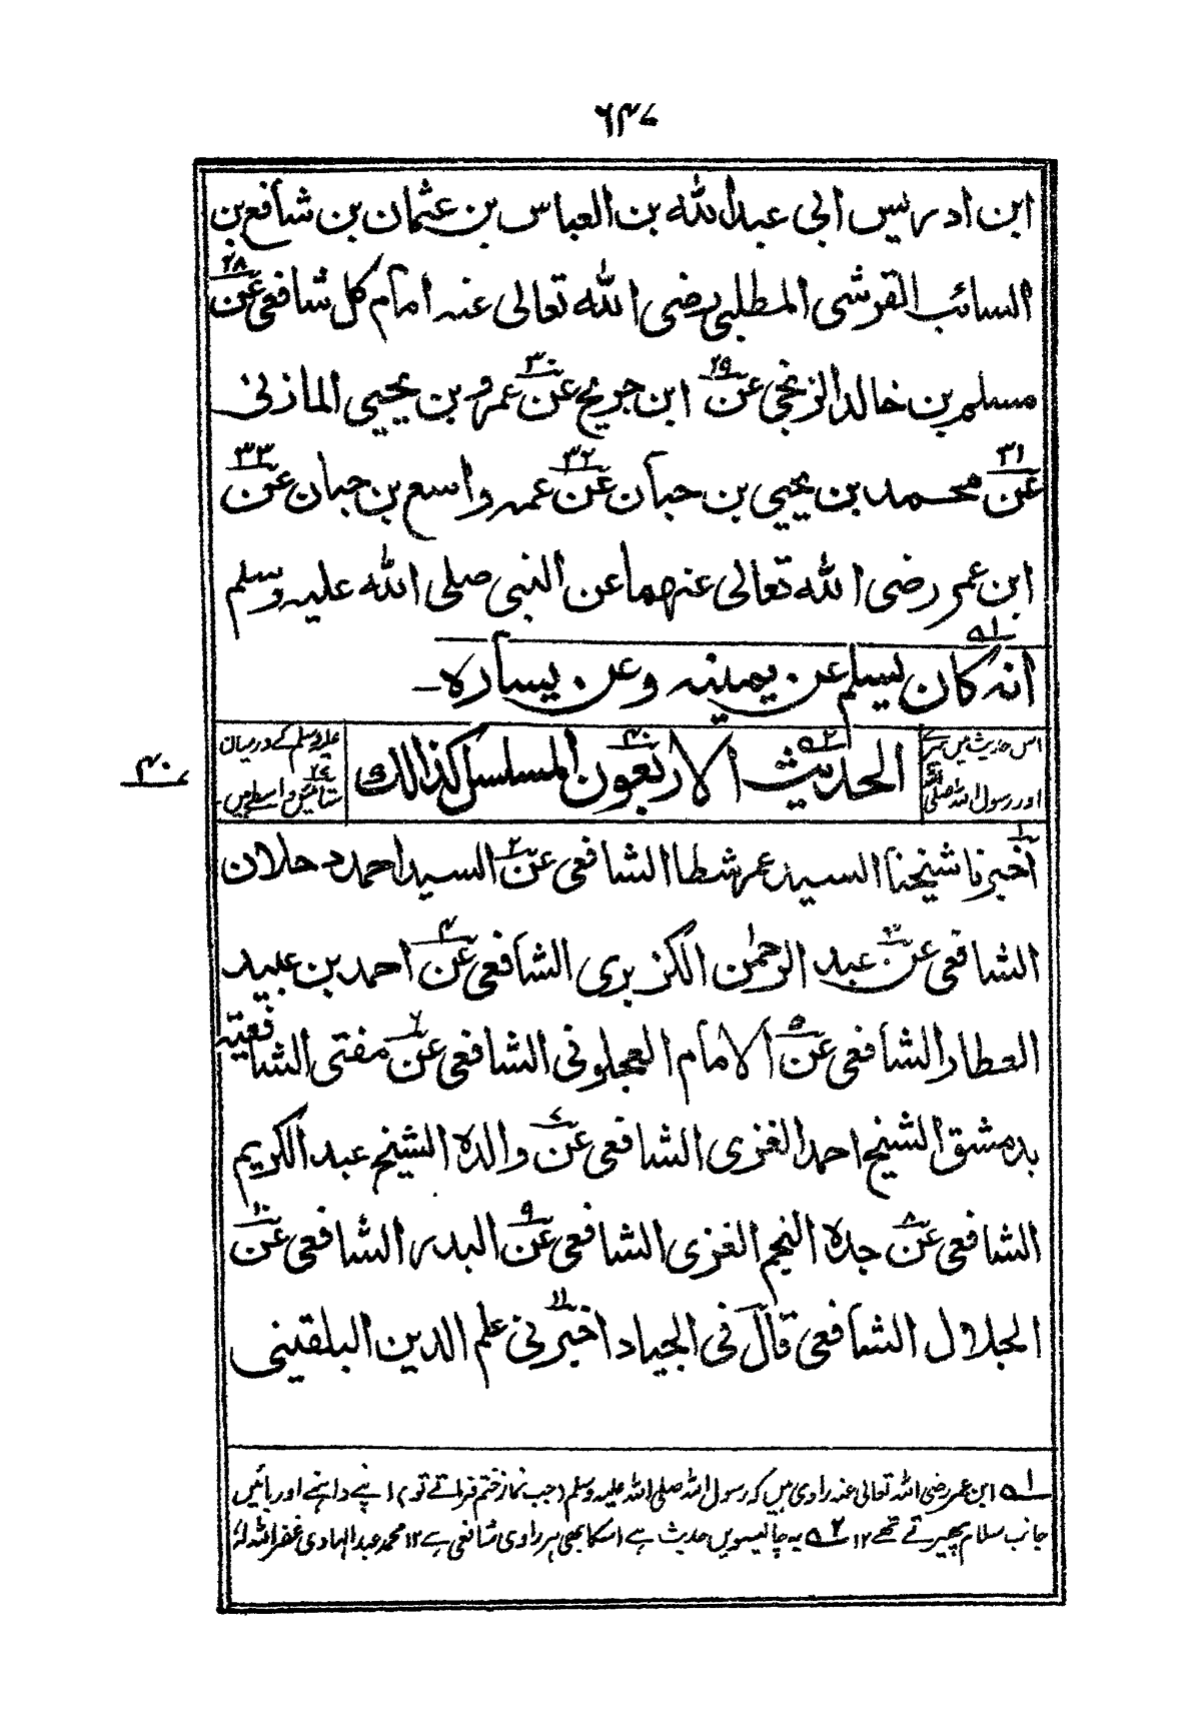 ۶۴۷
ابن ادریس ابی عبد الله بن العباس بن عثمان بن شافع بن
السائب القرشی المطلبی رضی الله تعالی عنه امام کل شافعی عن ۲۸
مسلم بن خالد الزنجی عن ۲۹ ابن جریج عن ۳۰ عمرو بن یحیی المازنی
عن ۳۱ محمد بن یحیی بن حبان عن ۳۲ عمه واسع بن حبان عن ۳۳
ابن عمر رضی الله تعالی عنهما عن النبی صلی الله علیه وسلم
انه کان یسلم عن یمینه وعن یساره۔ ۱ه
اس حدیث میں میرے
اور رسول اللہ صلی اللہ
الحدیث ۲ه الاربعون ۴۰ المسلسل کذالک
علیہ وسلم کے درمیان
ستائیس ۲۷ واسطے ہیں۔
۴۰
اخبرنا ۱ شیخنا السید عمر شطا الشافعی عن ۲ السید احمد دحلان
الشافعی عن ۳ عبد الرحمٰن الکزبری الشافعی عن ۴ احمد بن عبید
العطار الشافعی عن ۵ الامام العجلونی الشافعی عن ۶ مفتی الشافعیة
بدمشق الشیخ احمد الغزی الشافعی عن ۷ والده الشیخ عبد الکریم
الشافعی عن ۸ جده النجم الغزی الشافعی عن ۹ البدر الشافعی عن ۱۰
الجلال الشافعی قال فی الجیاد اخبرنی ۱۱ علم الدین البلقینی
۱ه ابن عمر رضی اللہ تعالی عنہ راوی ہیں کہ رسول اللہ صلی اللہ علیہ وسلم (جب نماز ختم فرماتے تو) اپنے داہنے اور بائیں
جانب سلام پھیرتے تھے ۱۲ ۲ه یہ چالیسویں حدیث ہے اسکا بھی ہر راوی شافعی ہے ۱۲ محمد عبد الہادی غفر اللہ لہٗ